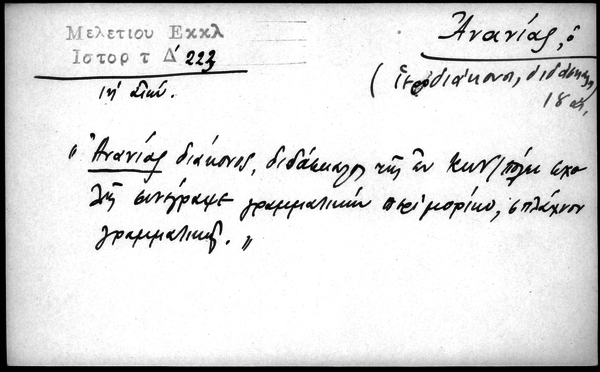 Μελετιου Εκκλ
Ιστορ τ Δ' 223
ιη' αἰών.
Ἀνανίας, ὁ
(ἱεροδιάκονος, διδάσκαλος
18 αἰ.
"Ἀνανίας διάκονος, διδάσκαλος τῆς ἐν Κων/πόλει σχο
λῆς συνέγραψε γραμματικὴν περὶ
γραμματικῆς."